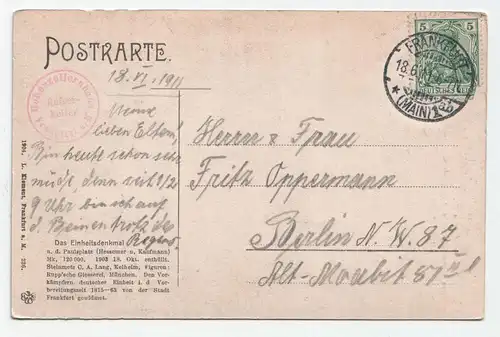 POSTKARTE.
18. VI. 1911
Meine
lieben Eltern!
Bin heute schon sehr
müde, denn seit 1/2
9 Uhr bin ich auf
d. Beinen trotz des
Regens.
Herrn u. Frau
Fritz Oppermann
Berlin N.W. 87
Alt-Moabit 87
FRANKFURT
18.6.
(MAIN)
5 5
1904. L. Klement, Frankfurt a. M. 236.
Das Einheitsdenkmal
a. d. Paulsplatz (Hessemer u. Kaufmann)
Mk. 120 000. 1903 18. Okt. enthüllt.
Steinmetz C. A. Lang, Kelheim, Figuren:
Rupp'sche Giesserei, München. Den Vor-
kämpfern deutscher Einheit i. d. Vor-
bereitungszeit 1815—63 von der Stadt
Frankfurt gewidmet.